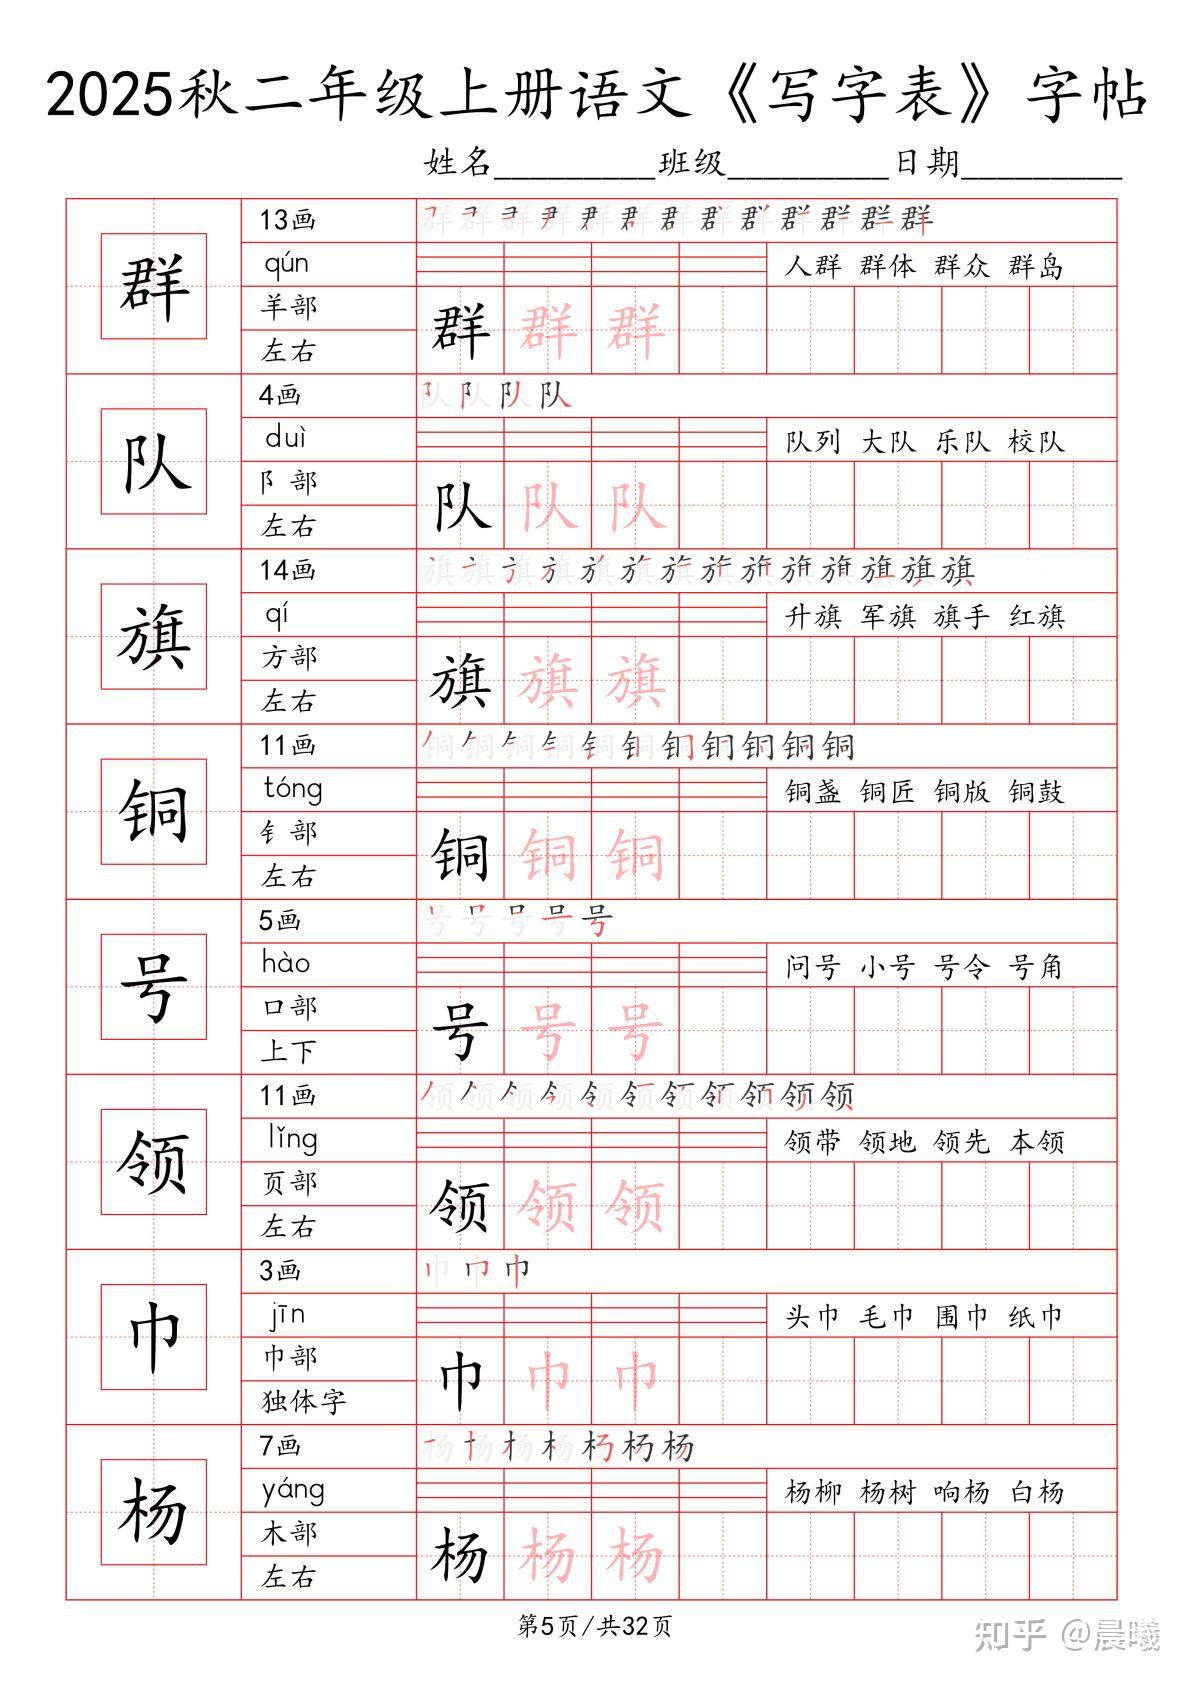 2025秋二年级上册语文《写字表》字帖
姓名_________班级_________日期_________
群
13画
群群群群群群群群群群群群群
qún
人群 群体 群众 群岛
羊部
左右
群 群 群
队
4画
队队队队
duì
队列 大队 乐队 校队
阝部
左右
队 队 队
旗
14画
旗旗旗旗旗旗旗旗旗旗旗旗旗旗
qí
升旗 军旗 旗手 红旗
方部
左右
旗 旗 旗
铜
11画
铜铜铜铜铜铜铜铜铜铜铜
tóng
铜盏 铜匠 铜版 铜鼓
钅部
左右
铜 铜 铜
号
5画
号号号号号
hào
问号 小号 号令 号角
口部
上下
号 号 号
领
11画
领领领领领领领领领领领
lǐng
领带 领地 领先 本领
页部
左右
领 领 领
巾
3画
巾巾巾
jīn
头巾 毛巾 围巾 纸巾
巾部
独体字
巾 巾 巾
杨
7画
杨杨杨杨杨杨杨
yáng
杨柳 杨树 响杨 白杨
木部
左右
杨 杨 杨
第5页/共32页
知乎 @晨曦